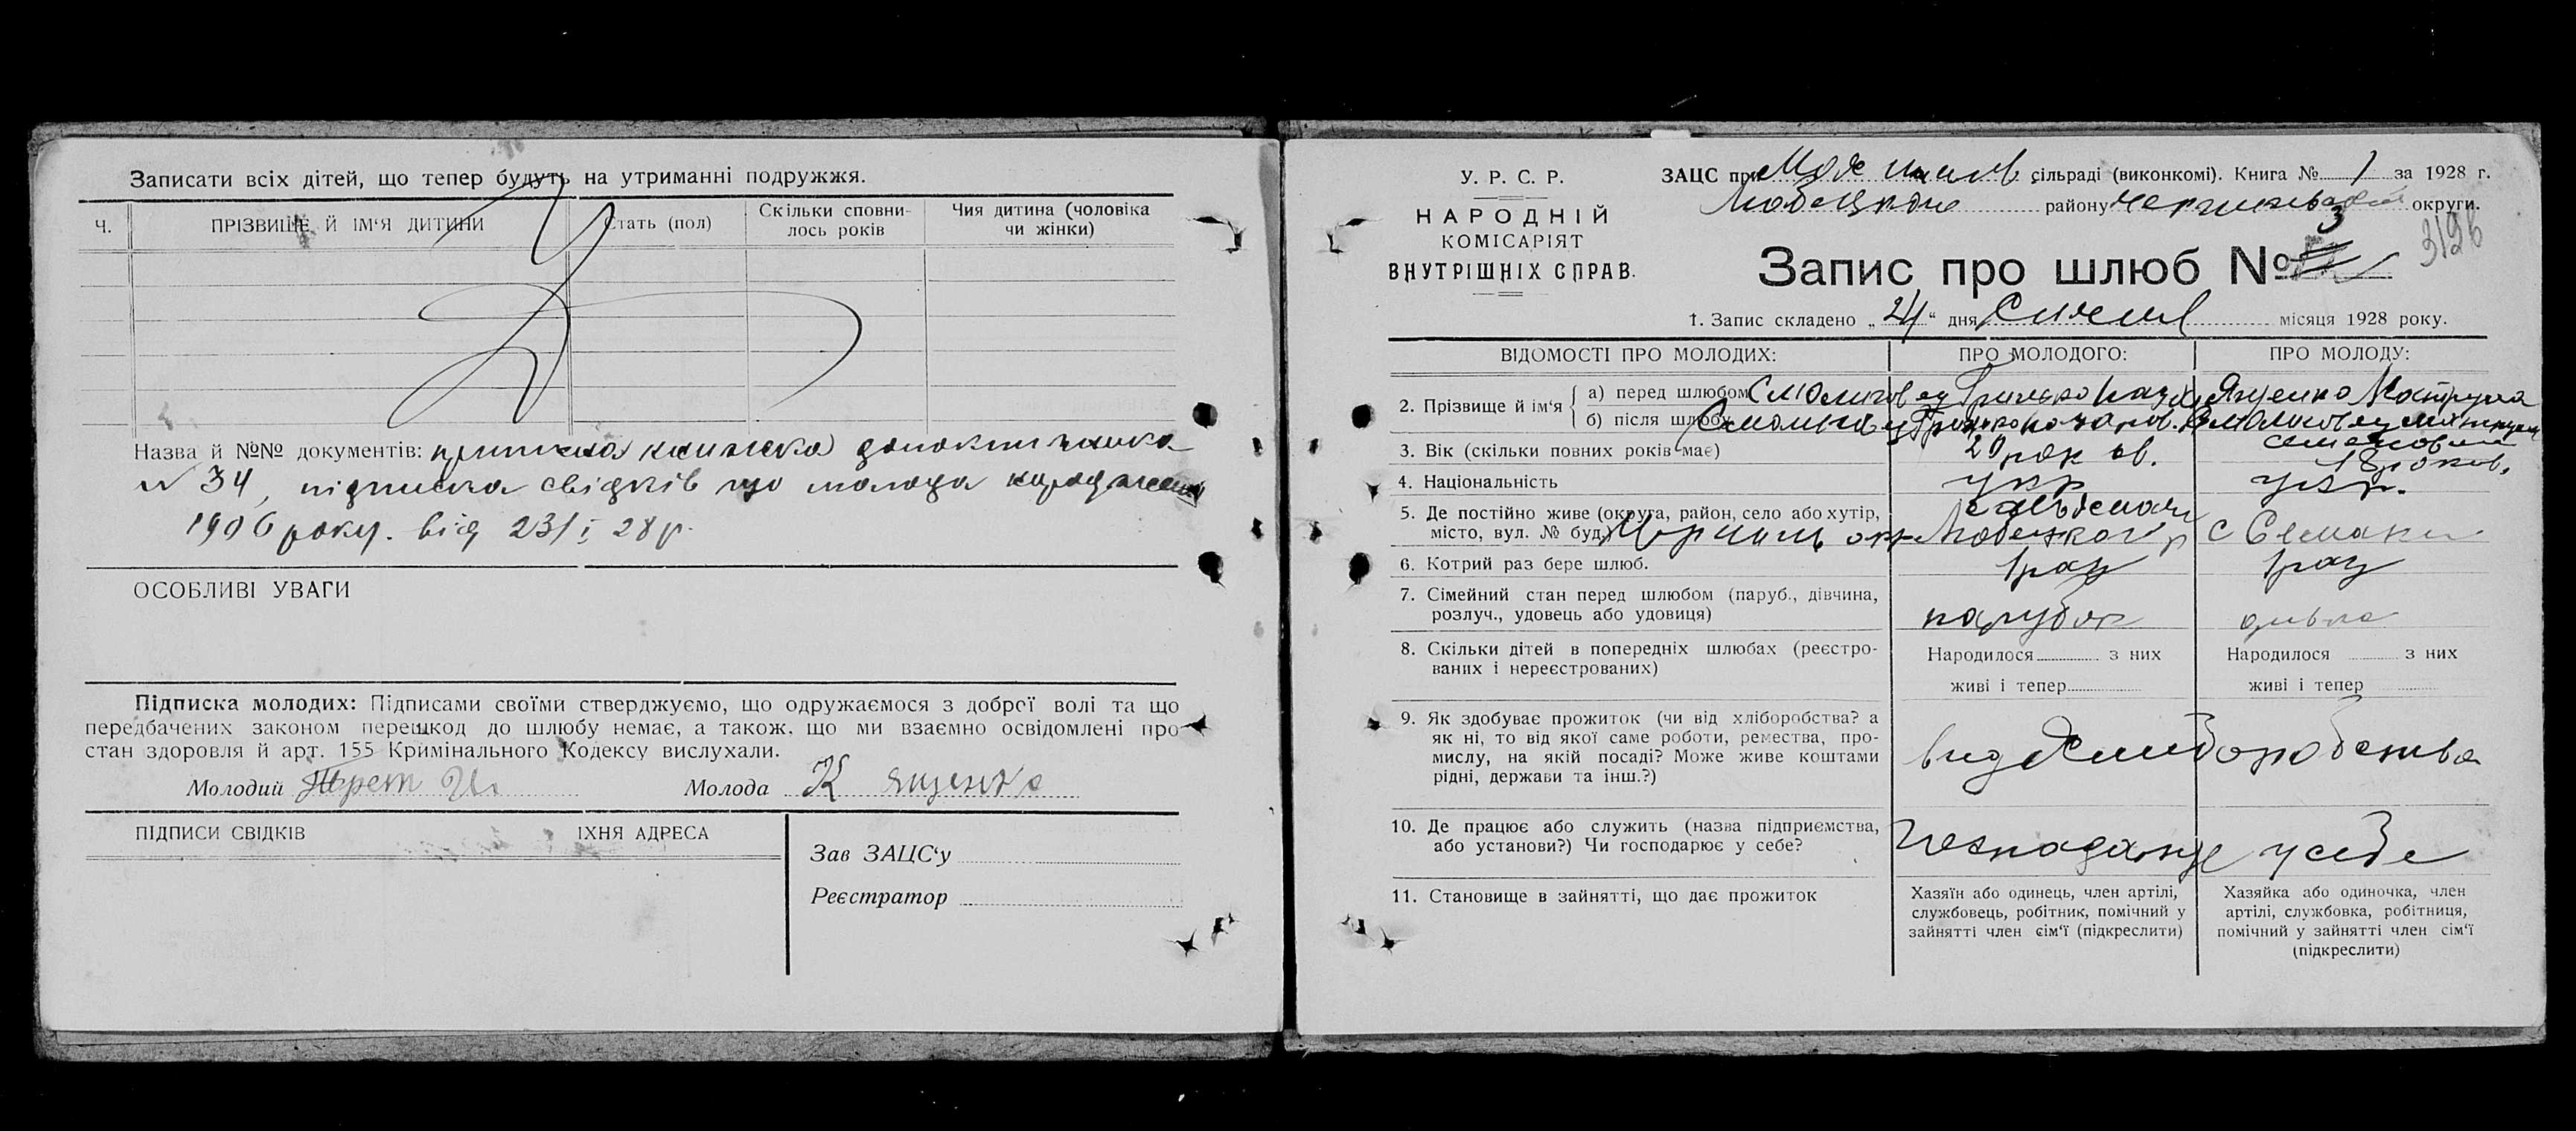 Записати всіх дітей, що тепер будуть на утриманні подружжя.
Ч. ПРІЗВИЩЕ Й ІМ'Я ДИТИНИ Стать (пол) Скільки сповнилось років Чия дитина (чоловіка чи жінки)
Назва й №№ документів:
№ 34, підписка свідків що молода
1906 року. від 23/I 28 р.
ОСОБЛИВІ УВАГИ
Підписка молодих: Підписами своїми стверджуємо, що одружаємося з доброї волі та що
передбачених законом перешкод до шлюбу немає, а також. що ми взаємно освідомлені про
стан здоровля й арт. 155 Кримінального Кодексу вислухали.
Молодий Молода К Ященко
ПІДПИСИ СВІДКІВ ЇХНЯ АДРЕСА
Зав ЗАЦС'у
Реєстратор
У. Р. С. Р.
НАРОДНІЙ
КОМІСАРІЯТ
ВНУТРІШНІХ СПРАВ.
ЗАЦС при сільраді (виконкомі). Книга № 1 за 1928 г.
Любецкого району округи.
3
Запис про шлюб №
1. Запис складено „24“ дня місяця 1928 року.
ВІДОМОСТІ ПРО МОЛОДИХ: ПРО МОЛОДОГО: ПРО МОЛОДУ:
2. Прізвище й ім'я
а) перед шлюбом Ященко
б) після шлюбу
3. Вік (скільки повних років має) 20 рок ов. 18 роков.
4. Національність укр укр.
5. Де постійно живе (округа, район, село або хутір,
місто, вул. № буд.) Любецкого р с Семаки
6. Котрий раз бере шлюб. 1 раз 1 раз
7. Сімейний стан перед шлюбом (паруб., дівчина,
розлуч., удовець або удовиця) парубок
8. Скільки дітей в попередніх шлюбах (реєстро-
ваних і нереєстрованих)
Народилося з них
живі і тепер
Народилося з них
живі і тепер
9. Як здобуває прожиток (чи від хліборобства? а
як ні, то від якої саме роботи, ремества, про-
мислу, на якій посаді? Може живе коштами
рідні, держави та інш.?)
вид хлиборобства
10. Де працює або служить (назва підприємства,
або установи?) Чи господарює у себе?
у себе
11. Становище в зайнятті, що дає прожиток
Хазяїн або одинець, член артілі,
службовець, робітник, помічний у
зайнятті член сім'ї (підкреслити)
Хазяйка або одиночка, член
артілі, службовка, робітниця,
помічний у зайнятті член сім'ї
(підкреслити)